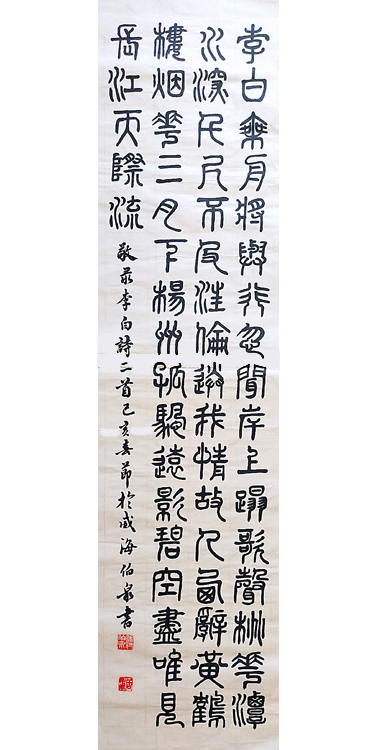 李白乘舟將與行忽聞岸上蹋歌聲桃花潭
水深千尺不及汪倫送我情故人西辭黃鶴
樓烟花三月下楊州孤颿遠影碧空盡唯見
長江天際流
敬李白詩二首己亥春節於威海伯泉書